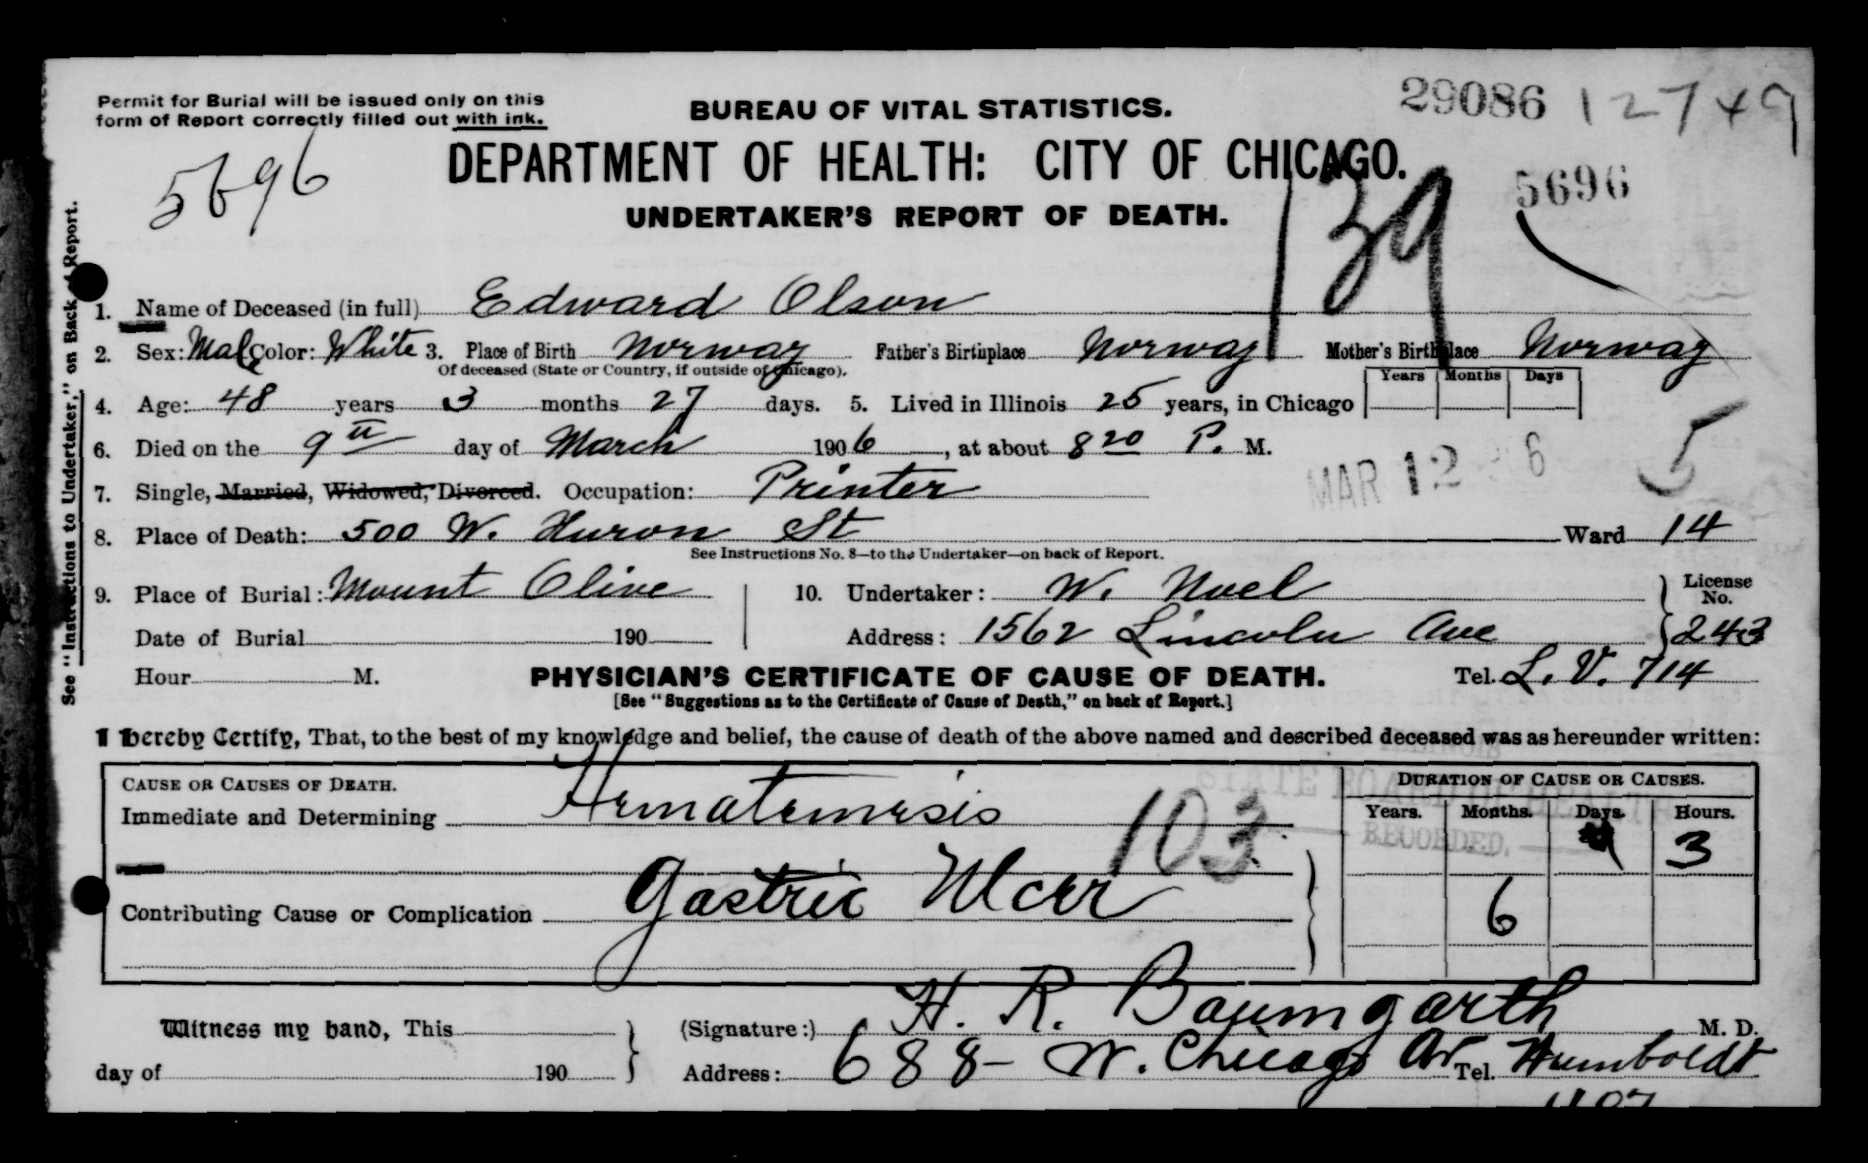 Permit for Burial will be issued only on this
form of Report correctly filled out with ink.
BUREAU OF VITAL STATISTICS.
29086 12749
5696
DEPARTMENT OF HEALTH: CITY OF CHICAGO.
139
5696
UNDERTAKER'S REPORT OF DEATH.
See "Instructions to Undertaker," on Back of Report.
1. Name of Deceased (in full) Edward Olson
2. Sex: Male Color: White 3. Place of Birth Norway Father's Birthplace Norway Mother's Birthplace Norway
Of deceased (State or Country, if outside of Chicago).
Years Months Days
4. Age: 48 years 3 months 27 days. 5. Lived in Illinois 25 years, in Chicago
6. Died on the 9th day of March 1906, at about 8 20 P. M.
MAR 12 6
5
7. Single, Married, Widowed, Divorced. Occupation: Printer
8. Place of Death: 500 W. Huron St Ward 14
See Instructions No. 8—to the Undertaker—on back of Report.
9. Place of Burial: Mount Olive 10. Undertaker: W. Noel License No.
Date of Burial 190 Address: 1562 Lincoln Ave 243
Hour M. PHYSICIAN'S CERTIFICATE OF CAUSE OF DEATH. Tel. L. V. 714
[See "Suggestions as to the Certificate of Cause of Death," on back of Report.]
I hereby Certify, That, to the best of my knowledge and belief, the cause of death of the above named and described deceased was as hereunder written:
CAUSE OR CAUSES OF DEATH. DURATION OF CAUSE OR CAUSES.
STATE BOARD OF HEALTH
Immediate and Determining Hematemesis 103 Years. Months. Days. Hours.
RECORDED.
3
Contributing Cause or Complication Gastric Ulcer 6
Witness my hand, This (Signature:) H. R. Baumgarth M. D.
day of 190 Address: 688 - W. Chicago Av Tel. Humboldt